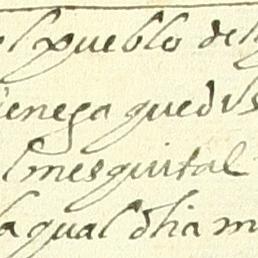 l pueblo del
enega que dis
l mesquital
a qual dha m